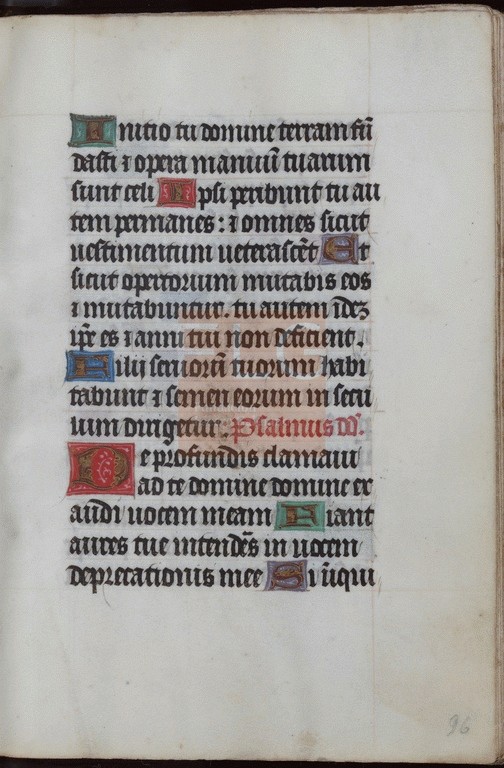 Initio tu domine terram fū
dasti ⁊ opera manuū tuarum
sunt celi Ipsi peribunt tu au
tem permanes : ⁊ omnes sicut
uestimentum ueterascēt Et
sicut opertorium mutabis eos
⁊ mutabuntur . tu autem idēz
ip̄e es ⁊ anni tui non deficient .
Filij seruorū tuorum habi
tabunt ⁊ semen eorum in secu
lum dirigetur . Psalmus dd̄ .
De profundis clamaui
ad te domine domine ex
audi uocem meam Fiant
aures tue intendēs in uocem
deprecationis mee Si īiqui
96